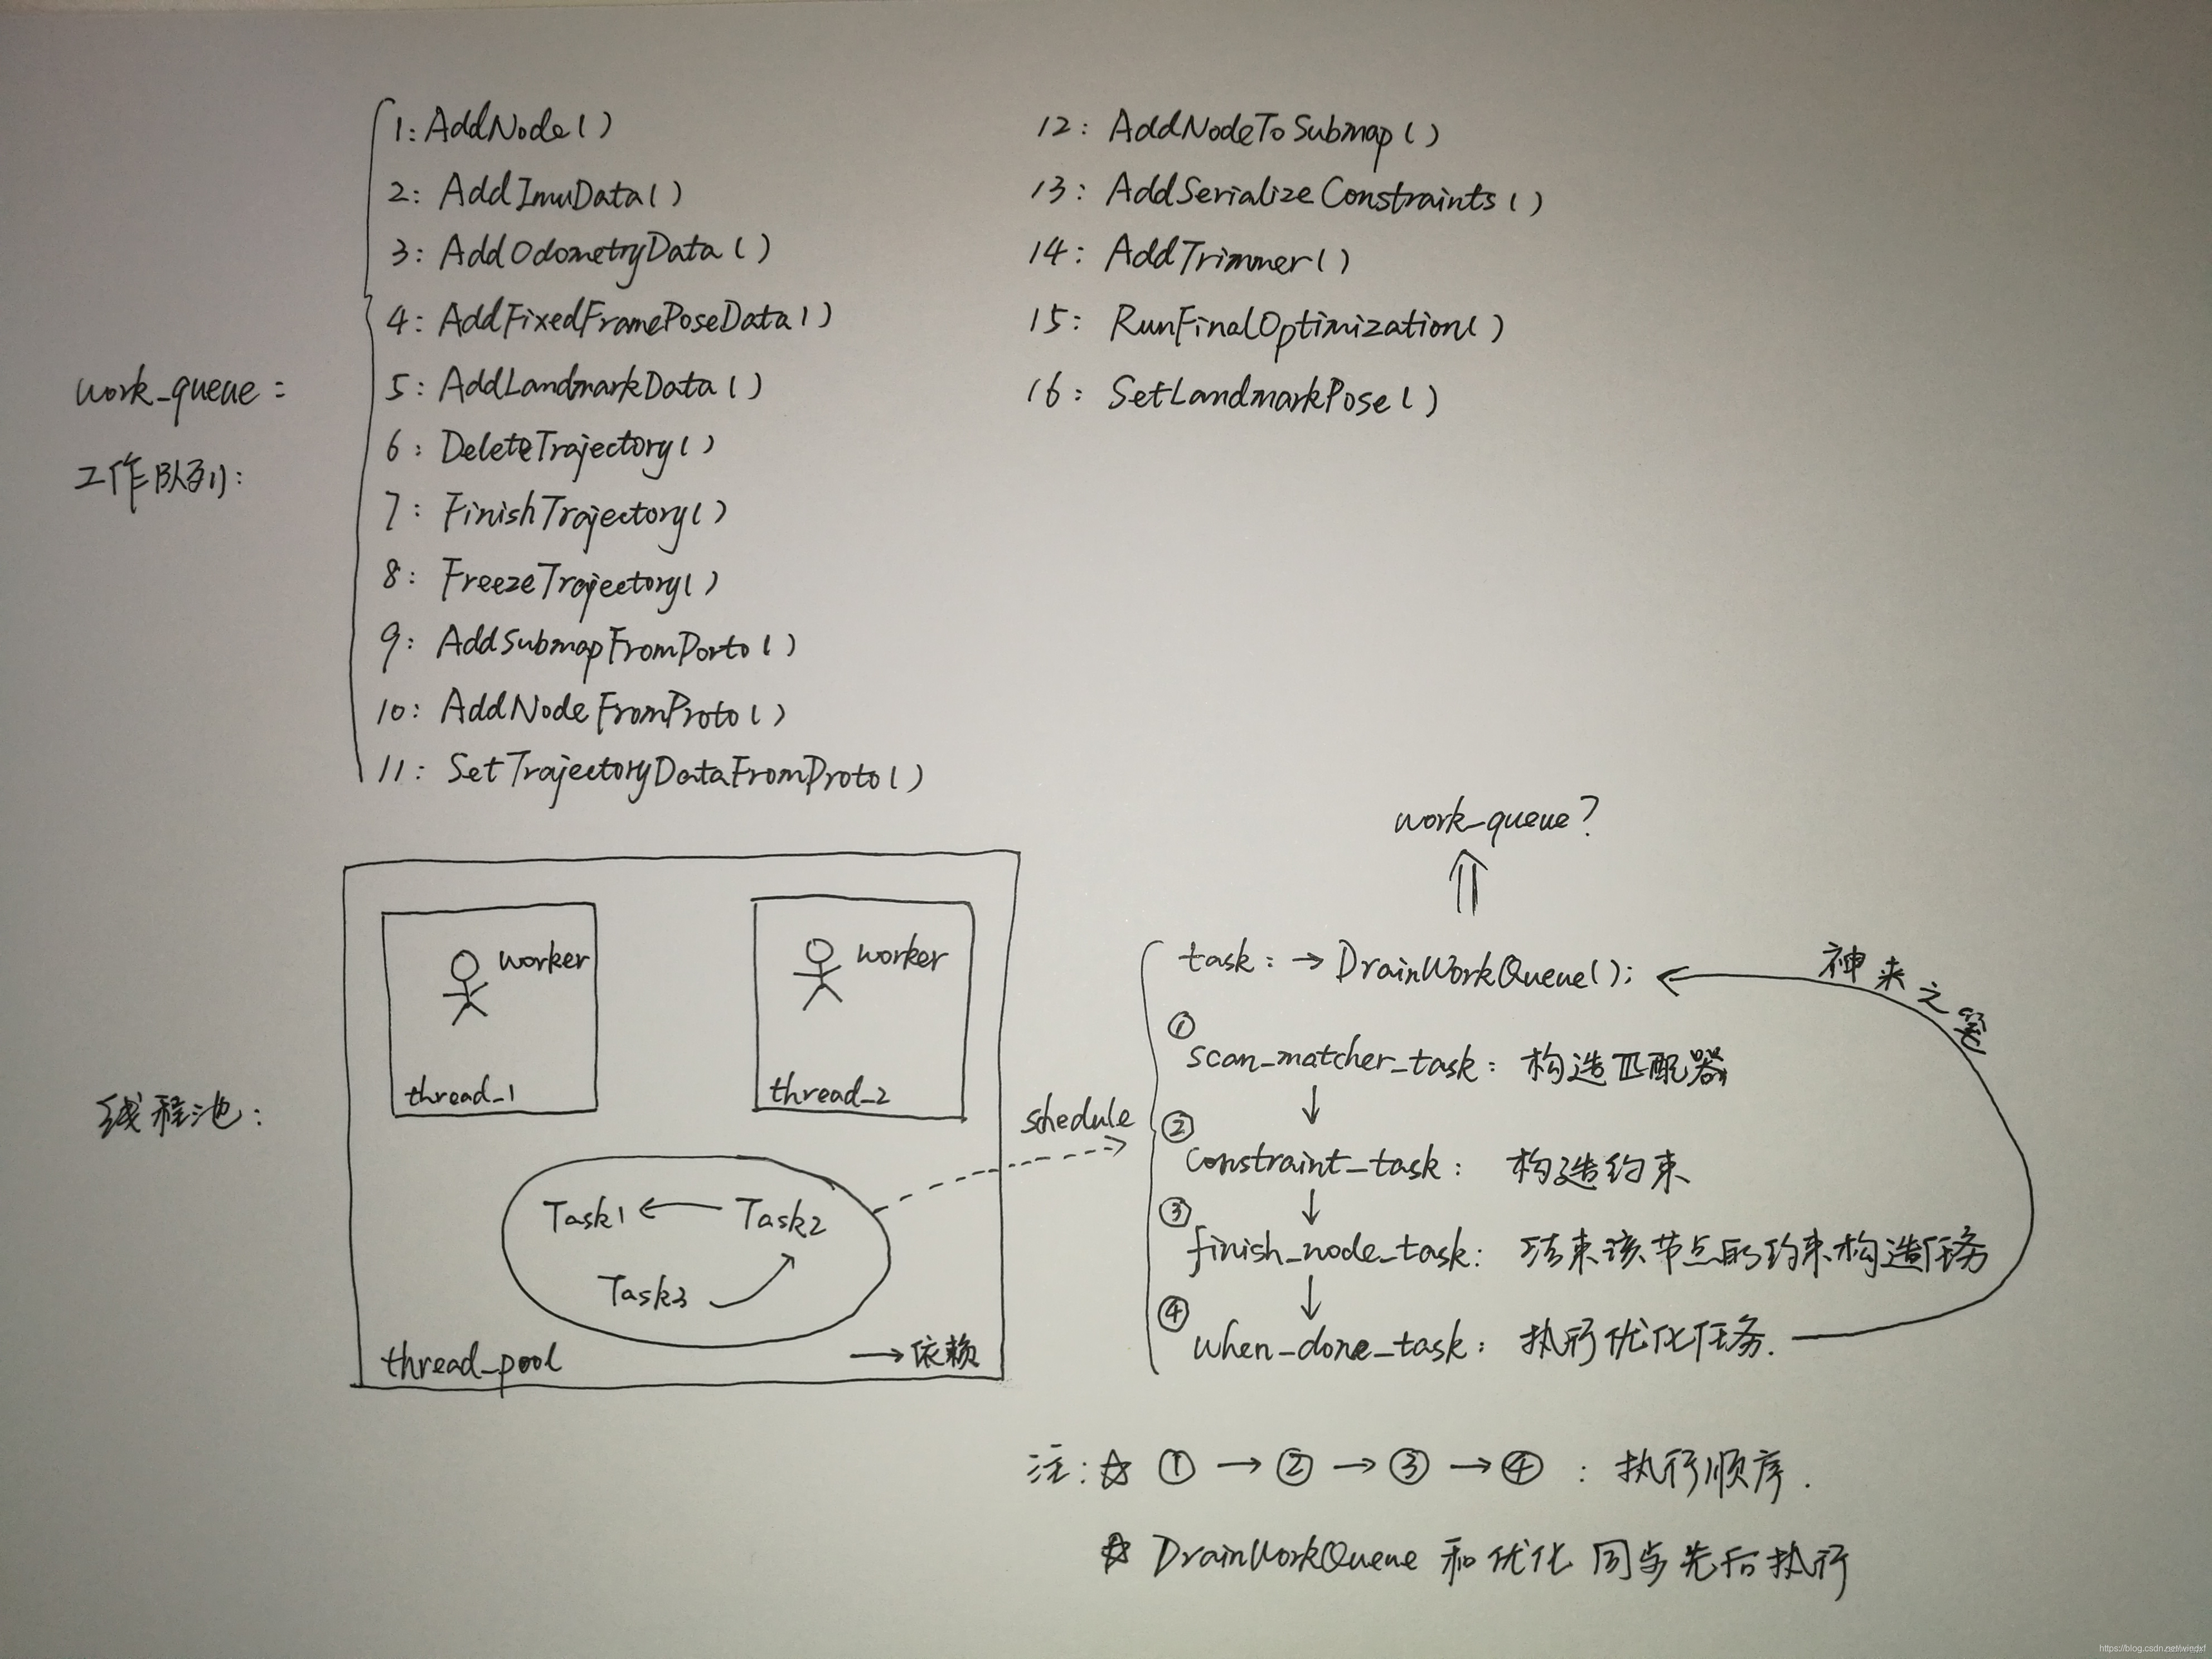 work_queue =
工作队列:
1: AddNode()
2: AddImuData()
3: AddOdometryData()
4: AddFixedFramePoseData()
5: AddLandmarkData()
6: DeleteTrajectory()
7: FinishTrajectory()
8: FreezeTrajectory()
9: AddSubmapFromPorto()
10: AddNodeFromProto()
11: SetTrajectoryDataFromProto()
12: AddNodeToSubmap()
13: AddSerializeConstraints()
14: AddTrimmer()
15: RunFinalOptimization()
16: SetLandmarkPose()
线程池:
worker
thread_1
worker
thread_2
Task1 ← Task2
Task3
thread_pool
→ 依赖
schedule
work_queue?
task: → DrainWorkQueue();
神来之笔
① scan_matcher_task: 构造匹配器
② constraint_task: 构造约束
③ finish_node_task: 结束该节点的约束构造任务
④ when_done_task: 执行优化任务.
注: ☆ ① → ② → ③ → ④ : 执行顺序.
☆ DrainWorkQueue 和优化 同步先后执行
https://blog.csdn.net/windxf